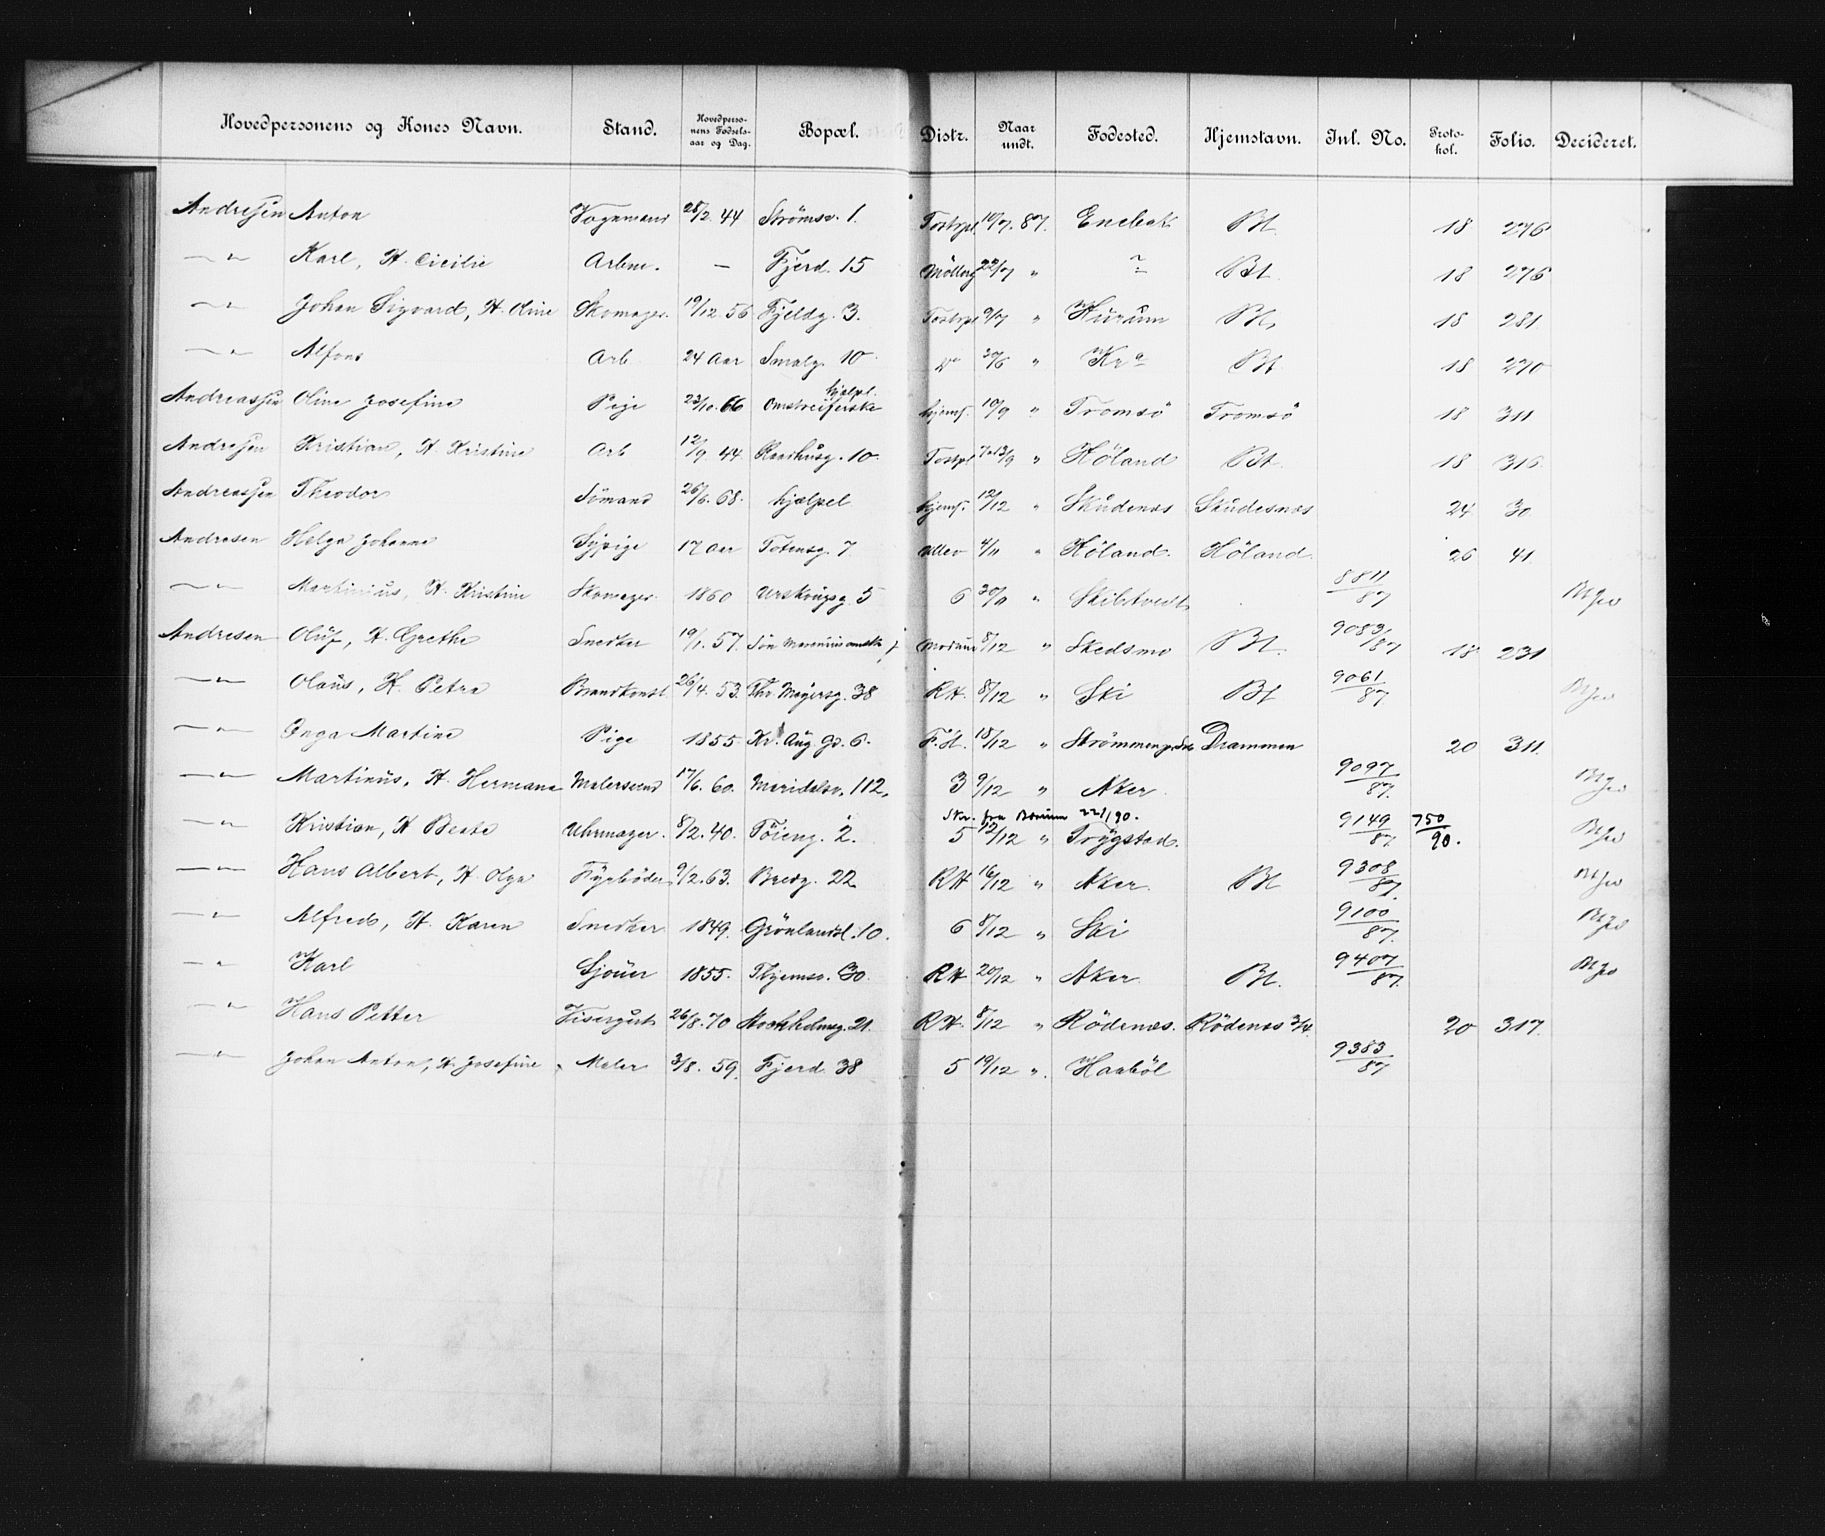 Hovedpersonens og Kones Navn. Stand. Hovedperso-nens Fødsels-aar og Dag. Bopæl. Distr. Naar undt. Fødested. Hjemstavn. Inl. No. Proto-kol. Folio. Decideret.
Andresen Anton Vognmand 28/2. 44 Strømsv. 1. 10/7. 87. Enebak Bt. 18 276
—„— Karl, H. Cicilie Arbm. — Fjerd. 15 22/7 „ Bt. 18 276
—„— Johan Sigvard, H. Oline Skomager. 19/12. 56 Fjeldg. 3. 9/7 „ Hurum Bt. 18 281
—„— Alfons Arb 24 Aar Smalg. 10 Do 30/6 „ Kra Bt 18 270
Andreassen Oline Josefine Pige 23/10. 66 Omstreiferske hjælpel. hjemf. 10/9 „ Tromsö Tromsö 18 311
Andresen Kristian, H. Kristine Arb 12/9. 44 Raadhusg. 10. „ Höland Bt. 18 316
Andreassen Theodor Sömand 26/6. 68. hjælpel hjemf. 12/12 „ Skudenæs Skudesnæs 24 30
Andresen Helga Johanne Sypige 17 Aar Totensg. 7 4/11 „ Höland. Höland. 26 41.
—„— Martinius, H. Kristine Skomager. 1860 Urskougsg. 5 6 30/11 „ 8811/87
Andresen Oluf, H. Grethe Snedker 19/1. 57. 8/12 „ Skedsmo Bt. 9083/87 18 231
—„— Olaus, H. Petra Brandkonst. 26/4. 53. Thv. Meyersg. 38 RH. 8/12 „ Ski Bt 9061/87
—„— Inga Martine Pige 1855 Kr. Aug Gd. 6. F.H. 18/12 „ Drammen 20 311.
—„— Martinus, H. Hermana Malersvend 17/6. 60. Maridalsv. 112. 3 9/12 „ Aker 9097/87.
Skr. fra Bærum 22/1 90.
—„— Kristian, H Beate Uhrmager. 8/2. 40. Töieng. 2. 5 12/12 „ Trygstad. 9149/87 750/90.
—„— Hans Albert, H. Olga Fyrböder 9/2. 63. Bredg. 22 RH 16/12 „ Aker. Bt 9308/87.
—„— Alfred, H. Karen Snedker 1849. Grönlandsl. 10. 6 8/12 „ Ski 9100/87.
—„— Karl Sjouer 1855. 30. RH 20/12 „ Aker Bt. 9407/87.
—„— Hans Petter Visergut 26/8. 70 Stockholmsg. 21. RH. 8/12 „ Rödenæs. Rödenæs 3/4. 20 317.
—„— Johan Anton, H. Josefine Maler 3/8. 59. Fjerd. 38 5 19/12 „ Haaböl 9383/87